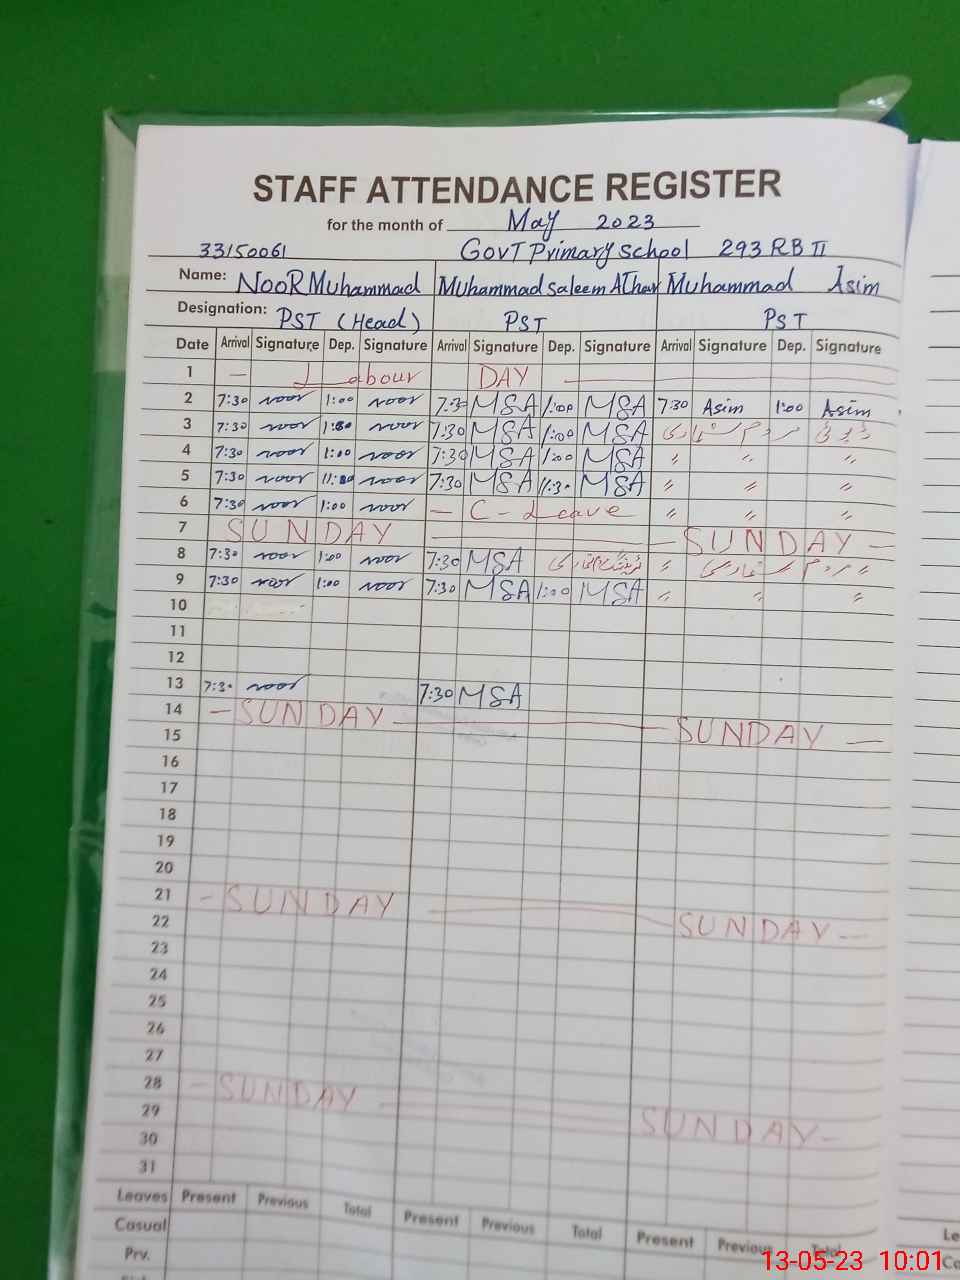 STAFF ATTENDANCE REGISTER
for the month of May 2023
33150061 GovT Primary School 293 RB II
Name: NooR Muhammad Muhammad Saleem AThar Muhammad Asim
Designation: PST (Head) PST PST
Date Arrival Signature Dep. Signature Arrival Signature Dep. Signature Arrival Signature Dep. Signature
1 — Labour DAY
2 7:30 noor 1:00 noor 7:30 MSA 1:00 MSA 7:30 Asim 1:00 Asim
3 7:30 noor 1:00 noor 7:30 MSA 1:00 MSA مردم شماری ڈیوٹی
4 7:30 noor 1:00 noor 7:30 MSA 1:00 MSA 〃 〃 〃
5 7:30 noor noor 7:30 MSA 11:30 MSA 〃 〃 〃
6 7:30 noor 1:00 noor — C-Leave 〃 〃 〃
7 SUNDAY — SUNDAY —
8 7:30 noor 1:00 noor 7:30 MSA 〃 مردم شماری 〃
9 7:30 noor 1:00 noor 7:30 MSA 1:00 MSA 〃 〃 〃
10
11
12
13 7:30 noor 7:30 MSA
14 — SUNDAY — SUNDAY —
15
16
17
18
19
20
21 — SUNDAY SUNDAY —
22
23
24
25
26
27
28 — SUNDAY SUNDAY —
29
30
31
Leaves Present Previous Total Present Previous Total Present Previous Total
Casual
Prv.
13-05-23 10:01